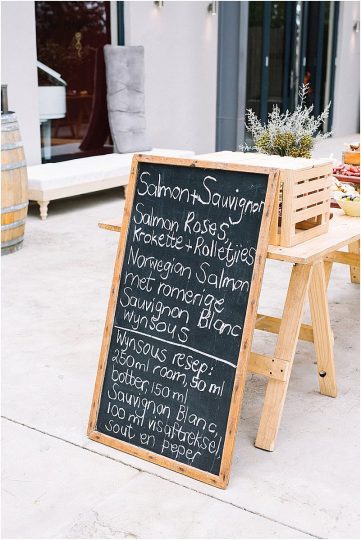 Salmon + Sauvignon
Salmon Roses
Krokette + Rolletjies
Norwegian Salmon
met romerige
Sauvignon Blanc
Wynsous
Wynsous resep:
250ml room, 50 ml
botter, 150 ml
Sauvignon Blanc,
100 ml visaftreksel,
sout en peper